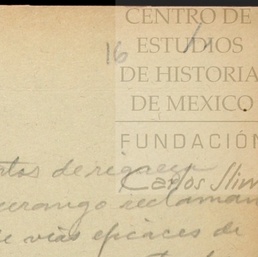 CENTRO DE
ESTUDIOS
DE HISTORIA
DE MEXICO
FUNDACIÓN
Carlos Slim
16
tos de rigareza
urango reclaman
e vías eficaces de